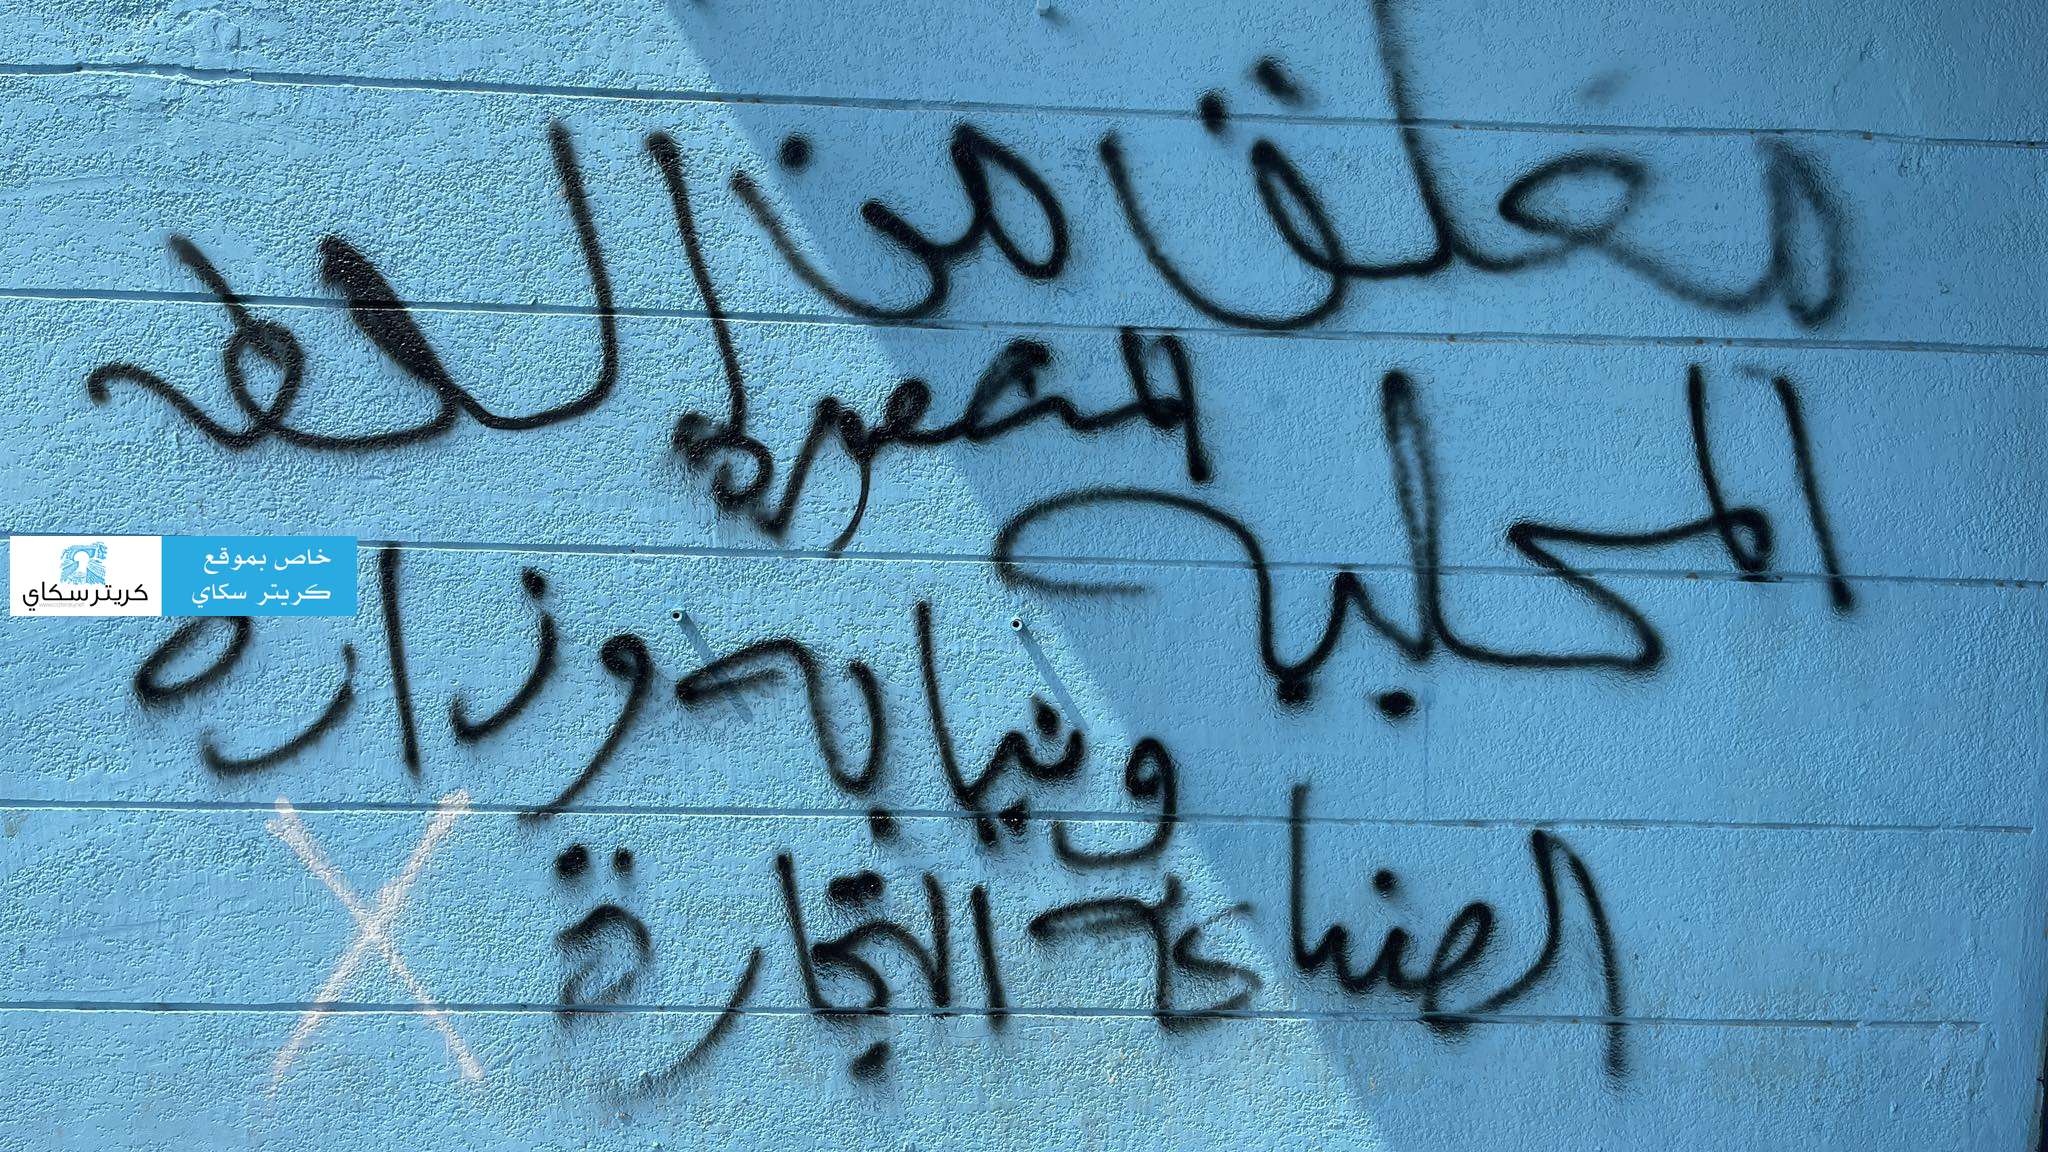 مغلق من السلطه
المحليه المنصوره
ونيابه وزاره
الصناعه التجارة
خاص بموقع
كريتر سكاي
كريتر سكاي